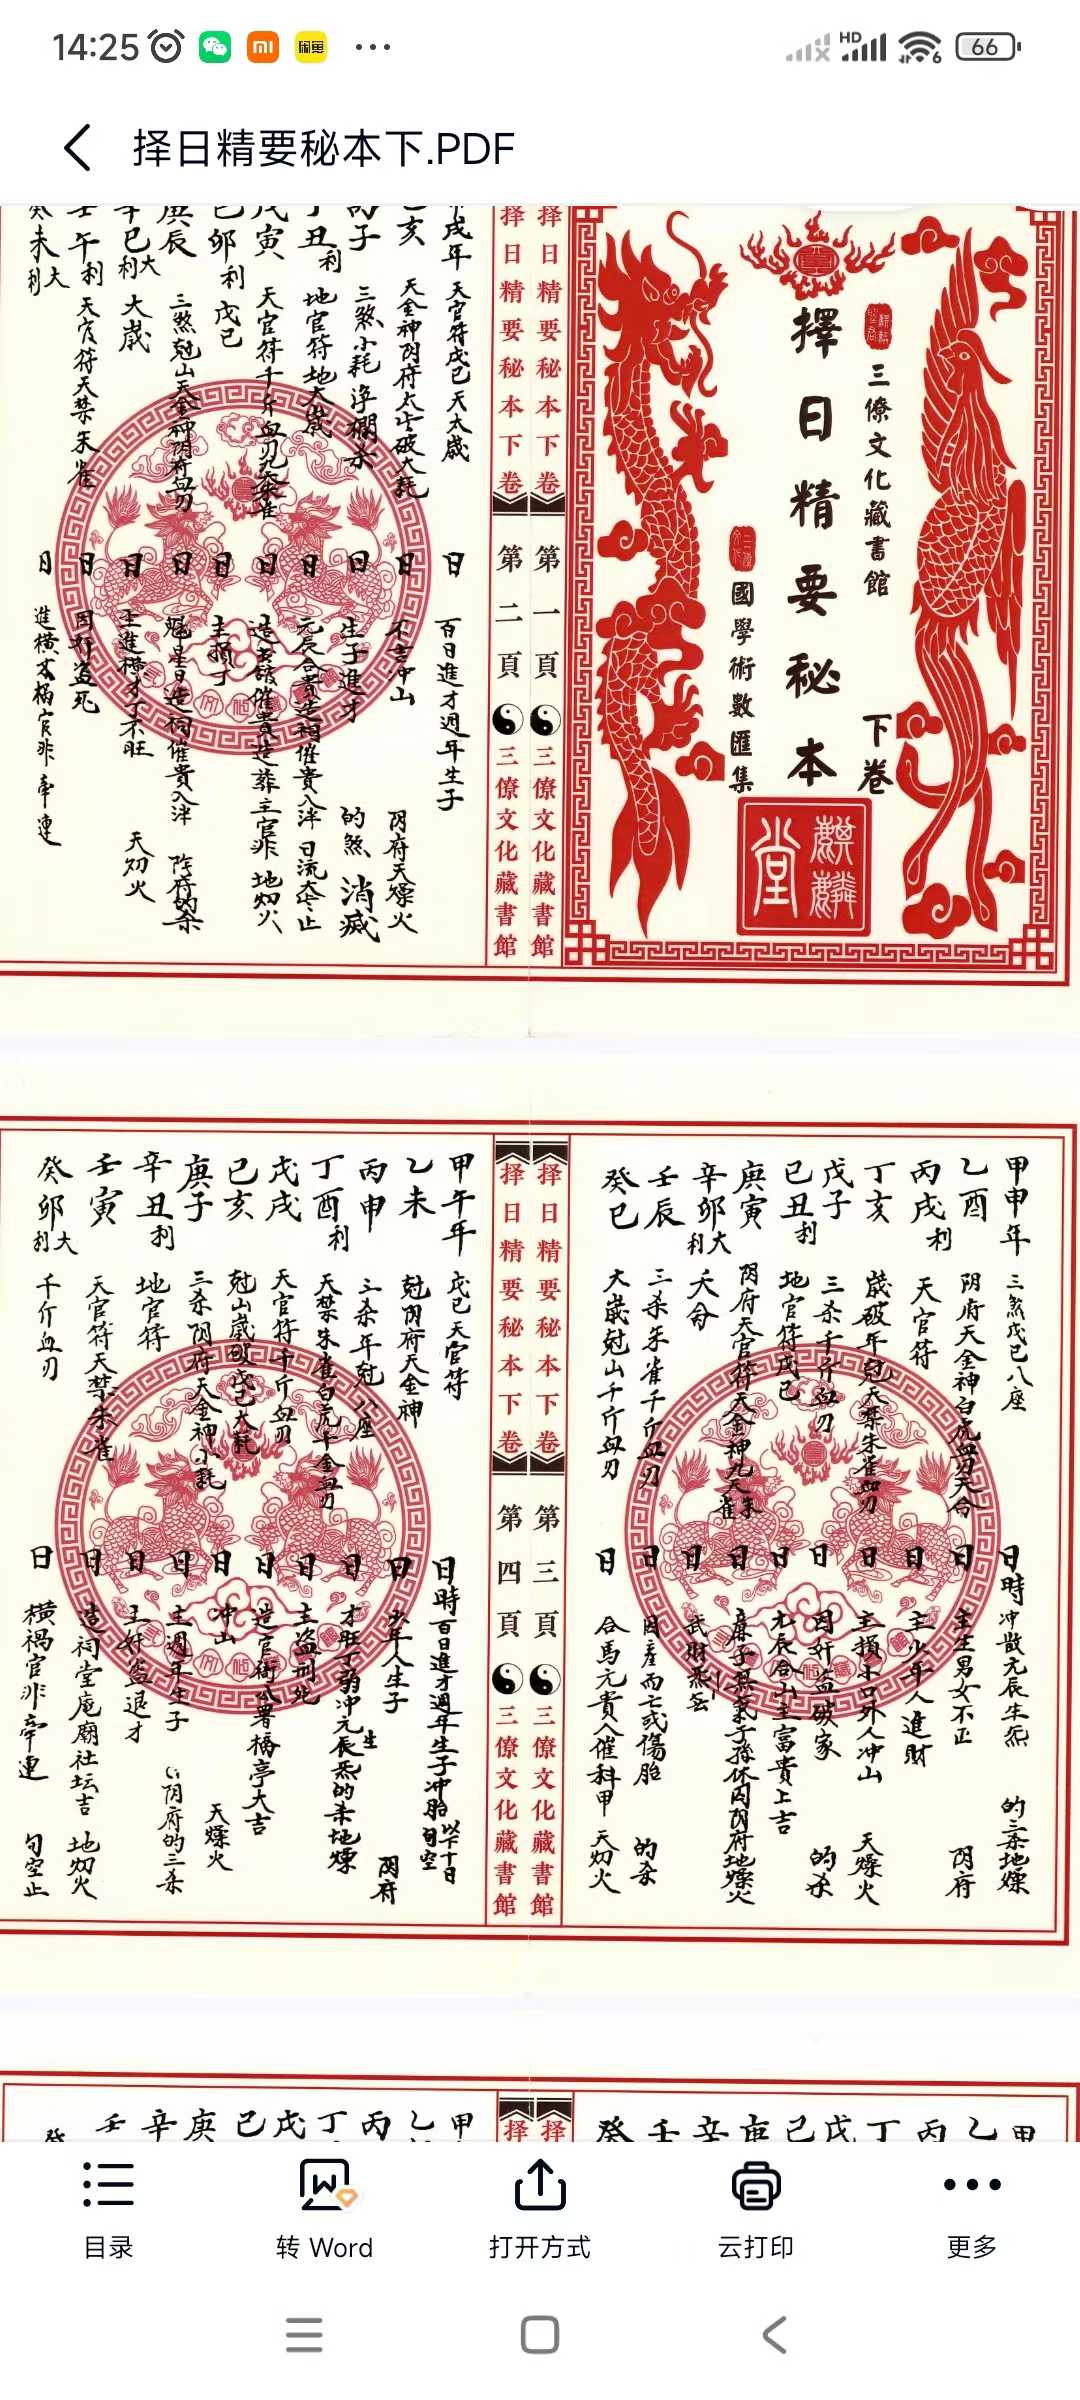 14:25
HD
6
66
择日精要秘本下.PDF
擇日精要秘本
下卷
三僚文化藏書館
國學術數匯集
麒麟堂
择日精要秘本下卷
第一頁
三僚文化藏書館
择日精要秘本下卷
第二頁
三僚文化藏書館
戌年 天官符戊巳天太歲 日 百日進才週年生子
亥 天金神阴府太歲破大耗 日 不吉冲山 阴府天燥火
子 三煞小耗净欄杀 日 生子進才 的煞消滅
丑利 地官符地太歲 日
戊寅 天官符千斤血刃 日 地灱火
己卯利 戊己 日 主損丁
庚辰 三煞尅山天金神阴府血刃 日 魁星日造祠催貴入泮
辛巳大利 大歲 日 主進横才丁不旺 天灱火
壬午利 天官符天禁朱雀 日 因奸盗死
癸未大利 日 官非牵連
甲申年 三煞戊己八座 日時 冲散元辰生炁 的三杀地燥
乙酉 阴府天金神白虎血刃天命 日 主生男女不正 阴府
丙戌利 天官符 日 主少年人進財
丁亥 歲破年尅天禁朱雀血刃 日 主損小口外人冲山 天燥火
戊子 三杀千斤血刃 日 因奸盗破家 的杀
己丑利 地官符戊己 日 元辰合山主富貴上吉
庚寅 阴府天官符天金神九天朱雀 日
辛卯大利 天命 日 武財炁
壬辰 三杀朱雀千斤血刃 日 因產而亡或傷胎 的杀
癸巳 大歲尅山千斤血刃 日 合馬元貴入催科甲 天灱火
择日精要秘本下卷
第三頁
三僚文化藏書館
择日精要秘本下卷
第四頁
三僚文化藏書館
甲午年 戊己天官符 日時 百日進才週年生子冲胎 以下十日旬空
乙未 尅阴府天金神 日 少年人生子 阴府
丙申 三杀年尅八座 日 才旺丁弱冲元辰生炁的杀地燥
丁酉利 天禁朱雀白虎千金血刃 日 主盗刑死
戊戌 天官符千斤血刃 日 造官衙公署橋亭大吉
己亥 尅山歲破戊己大耗 日 冲山 天燥火
庚子 三杀阴府天金神小耗 日 主週年生子 阴府的三杀
辛丑利 地官符 日 主奸盗退才
壬寅 天官符天禁朱雀 日 造祠堂庵廟社坛吉 地灱火
癸卯大利 千斤血刃 日 横禍官非牵連 旬空止
择 择
甲乙丙丁戊己庚辛壬癸
甲乙丙丁戊己庚辛壬癸
目录
转 Word
打开方式
云打印
更多